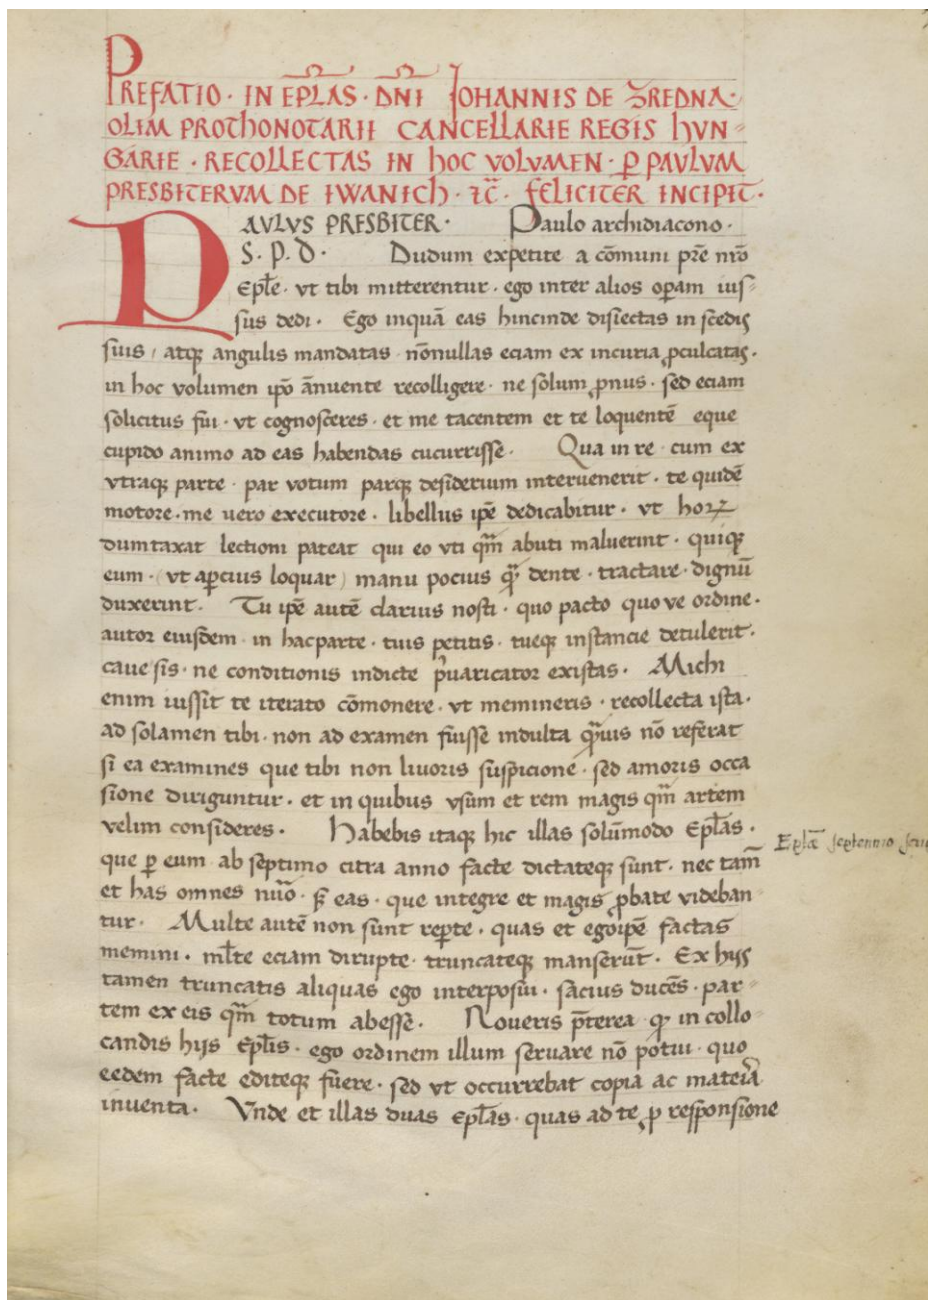 PREFATIO · IN EPL̄AS · DN̄I IOHANNIS DE ZREDNA ·
OLIM PROTHONOTARII CANCELLARIE REGIS HVN-
GARIE · RECOLLECTAS IN HOC VOLVMEN · ꝑ PAVLVM
PRESBITERVM DE IWANICH · ⁊c̄ · FELICITER INCIPIT ·
PAVLVS PRESBITER · Paulo archidiacono ·
S · P · D · Dudum expetite a cōmuni pr̄e nr̄o
Epl̄e · vt tibi mitterentur · ego inter alios oꝑam ius-
sus dedi · Ego inquā eas hincinde disiectas in scedis
suis / atqꝫ angulis mandatas · nōnullas eciam ex incuria ꝓculcatas ·
in hoc volumen ip̄o ānuente recolligere · ne solum ꝓnus · sed eciam
solicitus fui · vt cognosceres · et me tacentem et te loquentē eque
cupido animo ad eas habendas cucurrisse · Qua in re · cum ex
vtraqꝫ parte · par votum parqꝫ desiderium intervenerit · te quidē
motore · me vero executore · libellus ip̄e dedicabitur · vt hoꝝ
dumtaxat lectioni pateat qui eo vti qm̄ abuti maluerint · quiqꝫ
eum · (vt aꝑcius loquar) manu pocius qꝫ̄ dente · tractare · dignū
duxerint · Tu ip̄e autē clarius nosti · quo pacto quo ve ordine ·
autor eiusdem · in hac parte · tuis petitis · tueqꝫ instancie detulerit ·
cave sis · ne conditionis indicte p̄uaricator existas · Michi
enim iussit te iterato cōmonere · vt memineris · recollecta ista ·
ad solamen tibi · non ad examen fuisse indulta qꝫ̄uis nō referat
si ea examines que tibi non livoris suspicione · sed amoris occa
sione diriguntur · et in quibus vsum et rem magis qm̄ artem
velim consideres · Habebis itaqꝫ hic illas solūmodo Epl̄as ·
Epl̄æ septennio
que ꝑ eum · ab septimo citra anno facte dictateqꝫ sunt · nec tam̄
et has omnes nūo · sꝫ eas · que integre et magis ꝓbate videban
tur · Multe autē non sunt reꝑte · quas et egoip̄e factas
memini · ml̄te eciam dirupte · truncateqꝫ manserūt · Ex hijs
tamen truncatis aliquas ego interposui · sacius ducēs · par-
tem ex eis qm̄ totum abesse · Noveris p̄terea ꝙ in collo-
candis hijs Epl̄is · ego ordinem illum servare nō potui · quo
eedem facte editeqꝫ fuere · sed vt occurrebat copia ac materia
inventa · Vnde et illas duas Epl̄as · quas ad te ꝓ responsione